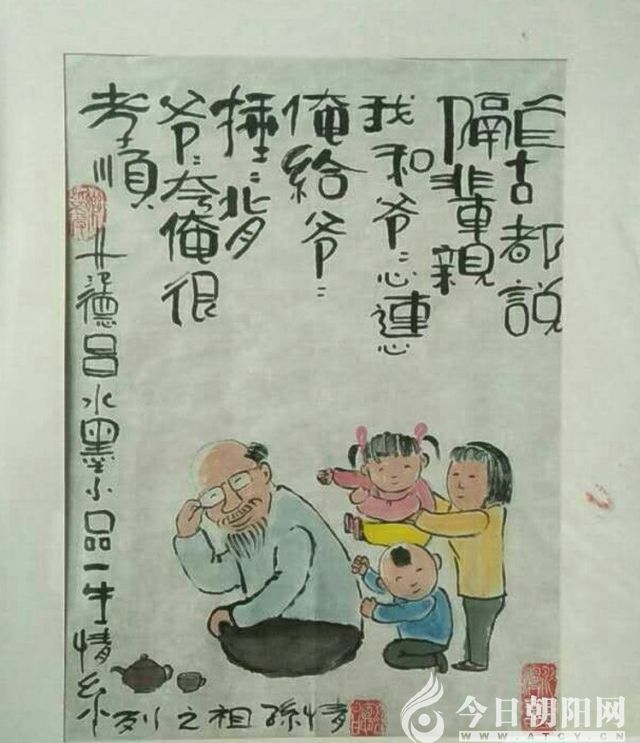 自古都説
隔輩親
我和爷〻心連心
俺給爷〻
捶〻背
爷〻夸俺很
孝順
德吕水墨小品一生情系
列之祖孫情
今日朝阳网
WWW.ATCY.CN